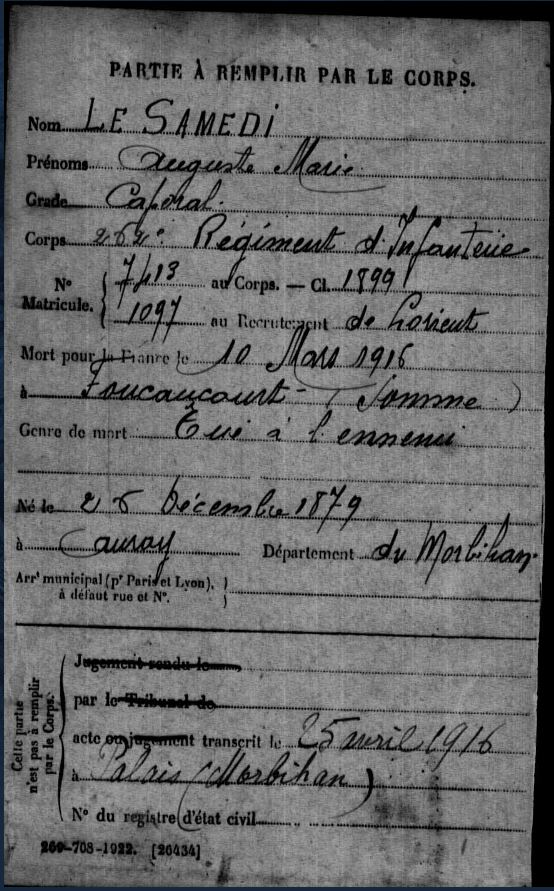 PARTIE À REMPLIR PAR LE CORPS.
Nom LE SAMEDI
Prénoms Auguste Marie
Grade Caporal.
Corps 262e Régiment d'Infanterie
N° Matricule. 7413 au Corps. — Cl. 1899
1097 au Recrutement de Lorient
Mort pour la France le 10 Mars 1916
à Foucaucourt - (Somme)
Genre de mort Tué à l'ennemi
Né le 26 Décembre 1879
à Auray Département du Morbihan
Arrt municipal (pr Paris et Lyon),
à défaut rue et N°.
Cette partie n'est pas à remplir par le Corps.
Jugement rendu le
par le Tribunal de
acte ou jugement transcrit le 25 avril 1916
à Palais (Morbihan)
N° du registre d'état civil
269-708-1922. [26434]